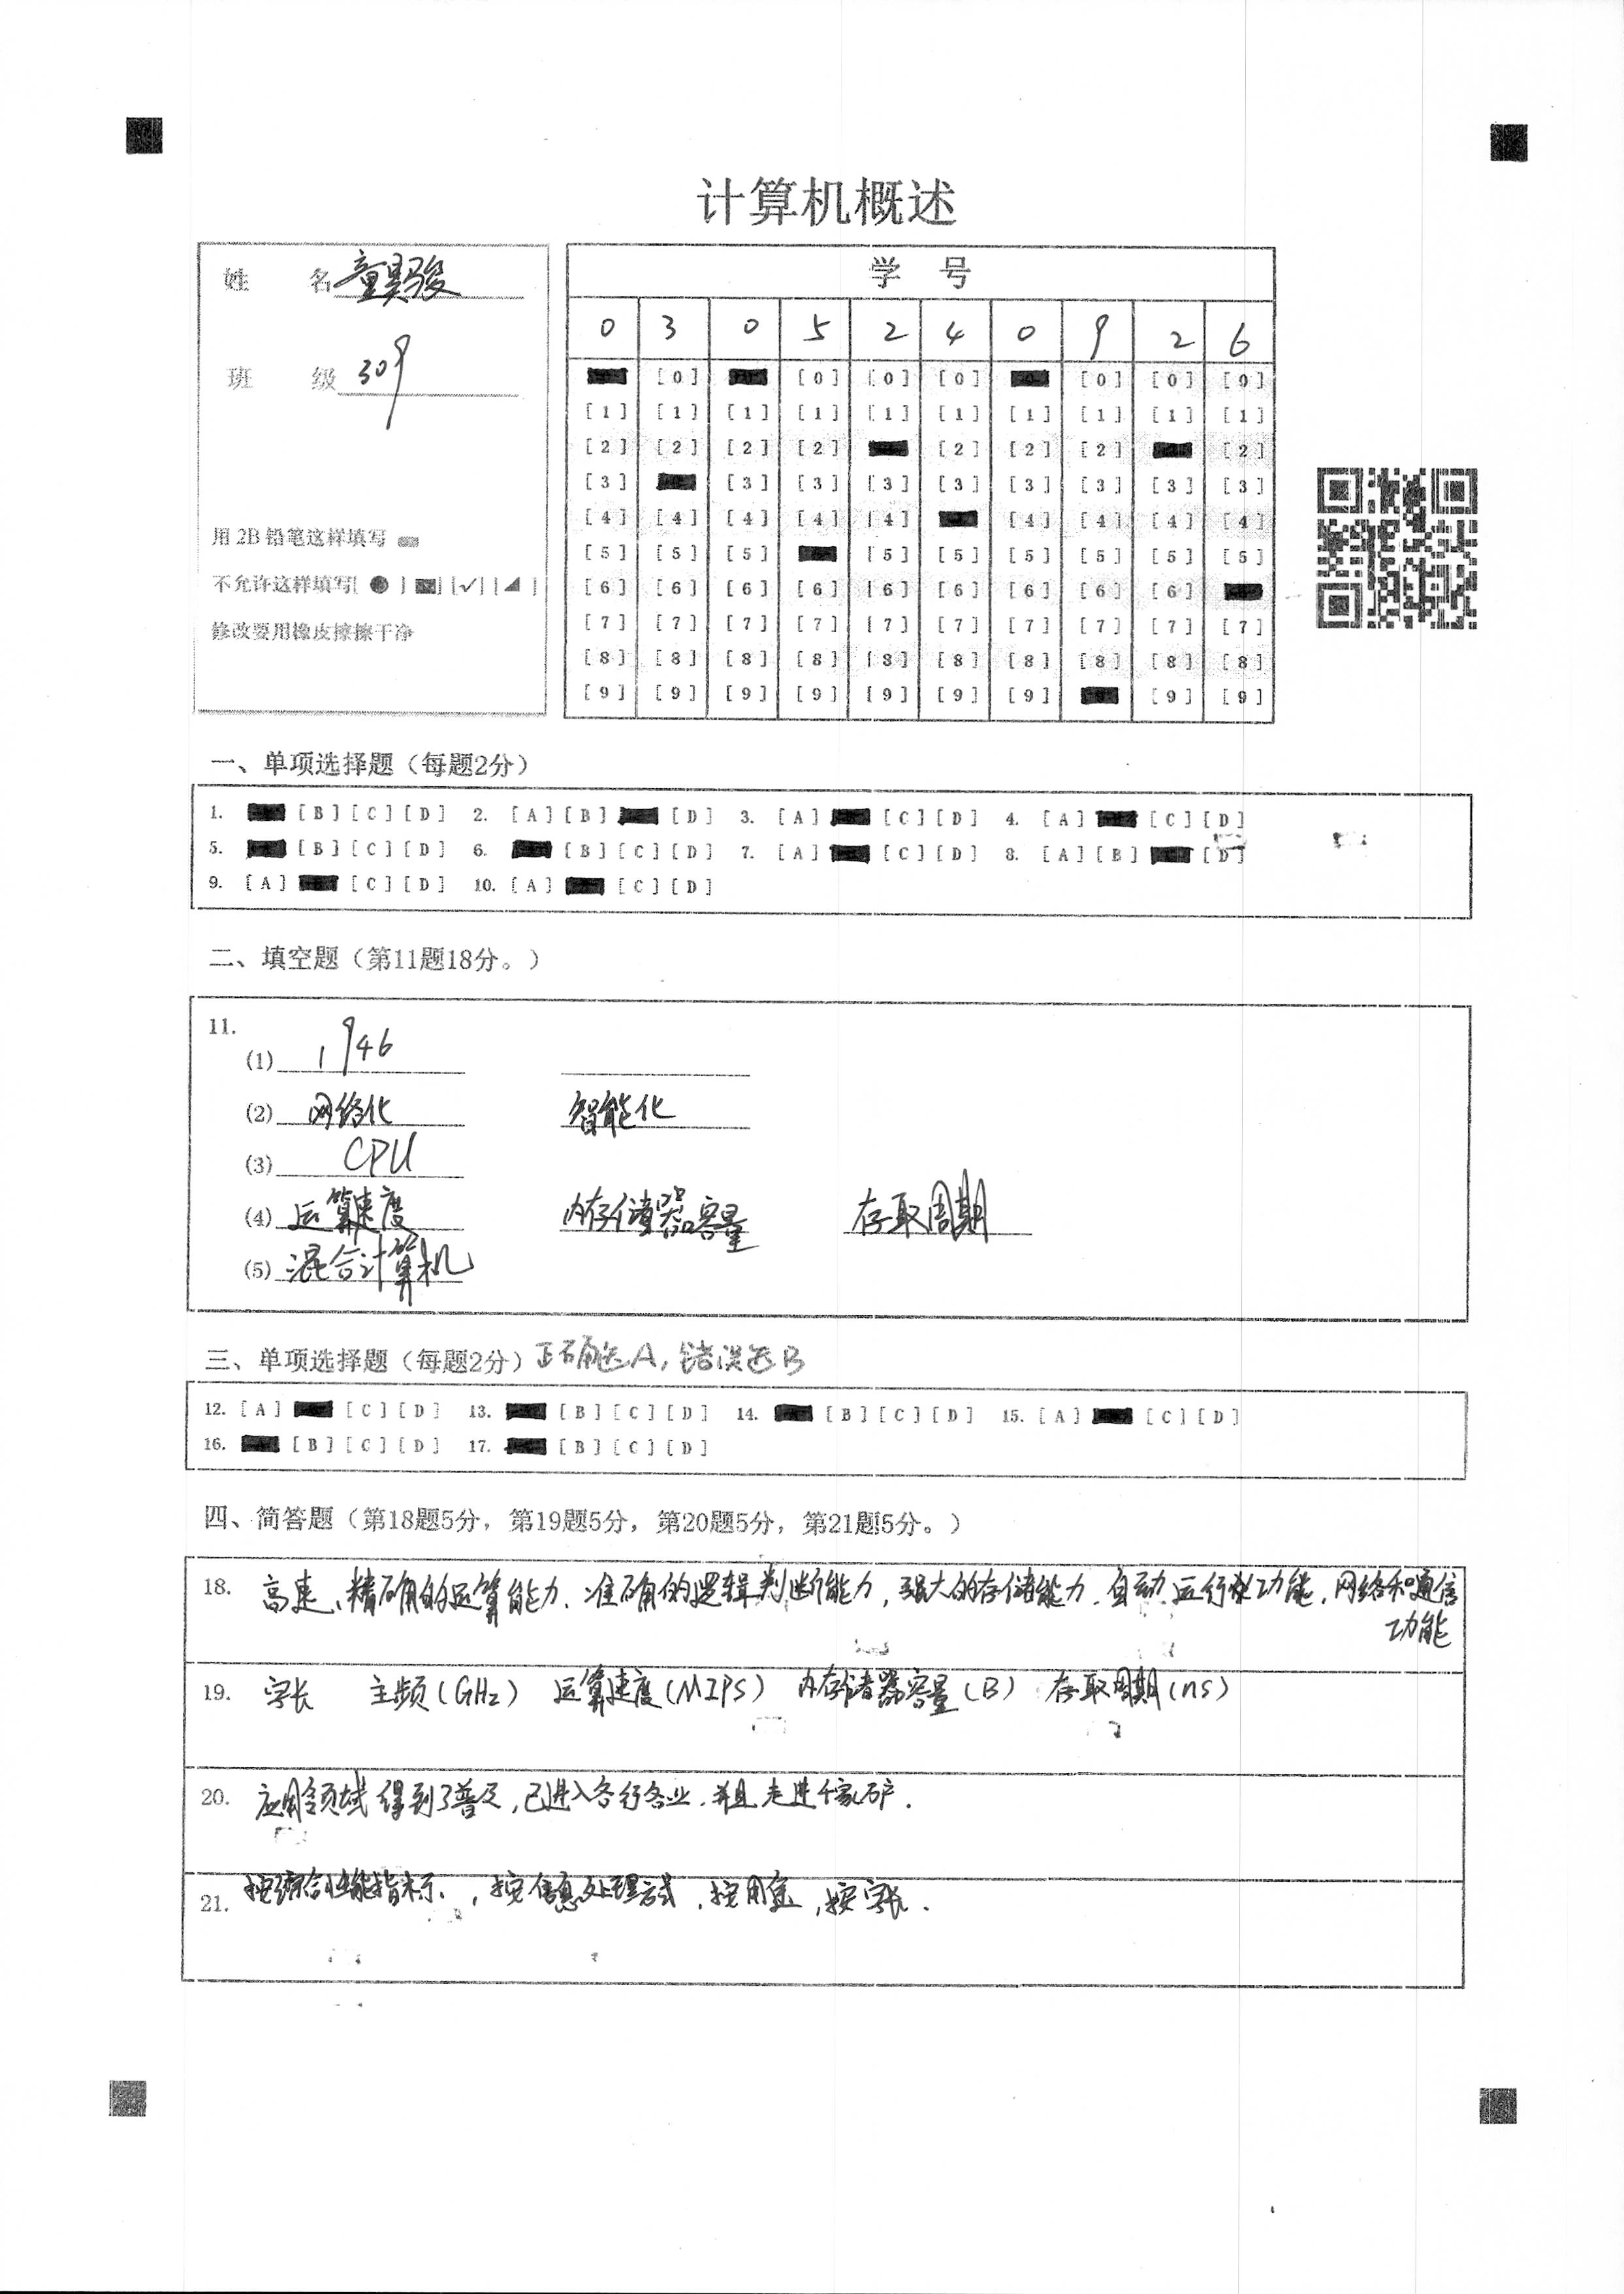 计算机概述
姓 名 童昊骏
班 级 309
用 2B 铅笔这样填写
不允许这样填写[ ● ] [ ] [✓] [◢ ]
修改要用橡皮擦擦干净
学 号
0 3 0 5 2 4 0 9 2 6
[0] [0] [0] [0] [0] [0] [0]
[1] [1] [1] [1] [1] [1] [1] [1] [1] [1]
[2] [2] [2] [2] [2] [2] [2] [2]
[3] [3] [3] [3] [3] [3] [3] [3] [3]
[4] [4] [4] [4] [4] [4] [4] [4] [4]
[5] [5] [5] [5] [5] [5] [5] [5] [5]
[6] [6] [6] [6] [6] [6] [6] [6] [6]
[7] [7] [7] [7] [7] [7] [7] [7] [7] [7]
[8] [8] [8] [8] [8] [8] [8] [8] [8] [8]
[9] [9] [9] [9] [9] [9] [9] [9] [9]
一、单项选择题（每题2分）
1. [B] [C] [D] 2. [A] [B] [D] 3. [A] [C] [D] 4. [A] [C] [D]
5. [B] [C] [D] 6. [B] [C] [D] 7. [A] [C] [D] 8. [A] [B] [D]
9. [A] [C] [D] 10. [A] [C] [D]
二、填空题（第11题18分。）
11.
(1) 1946
(2) 网络化 智能化
(3) CPU
(4) 运算速度 内存储器容量 存取周期
(5) 混合计算机
三、单项选择题（每题2分）正确选A，错误选B
12. [A] [C] [D] 13. [B] [C] [D] 14. [B] [C] [D] 15. [A] [C] [D]
16. [B] [C] [D] 17. [B] [C] [D]
四、简答题（第18题5分，第19题5分，第20题5分，第21题5分。）
18. 高速、精确的运算能力、准确的逻辑判断能力，强大的存储能力、自动运行功能，网络和通信
功能
19. 字长 主频(GHz) 运算速度(MIPS) 内存储器容量(B) 存取周期(ns)
20. 应用领域得到了普及，已进入各行各业，并且走进千家万户.
21. 按综合性能指标、，按信息处理方式，按用途，按字长.